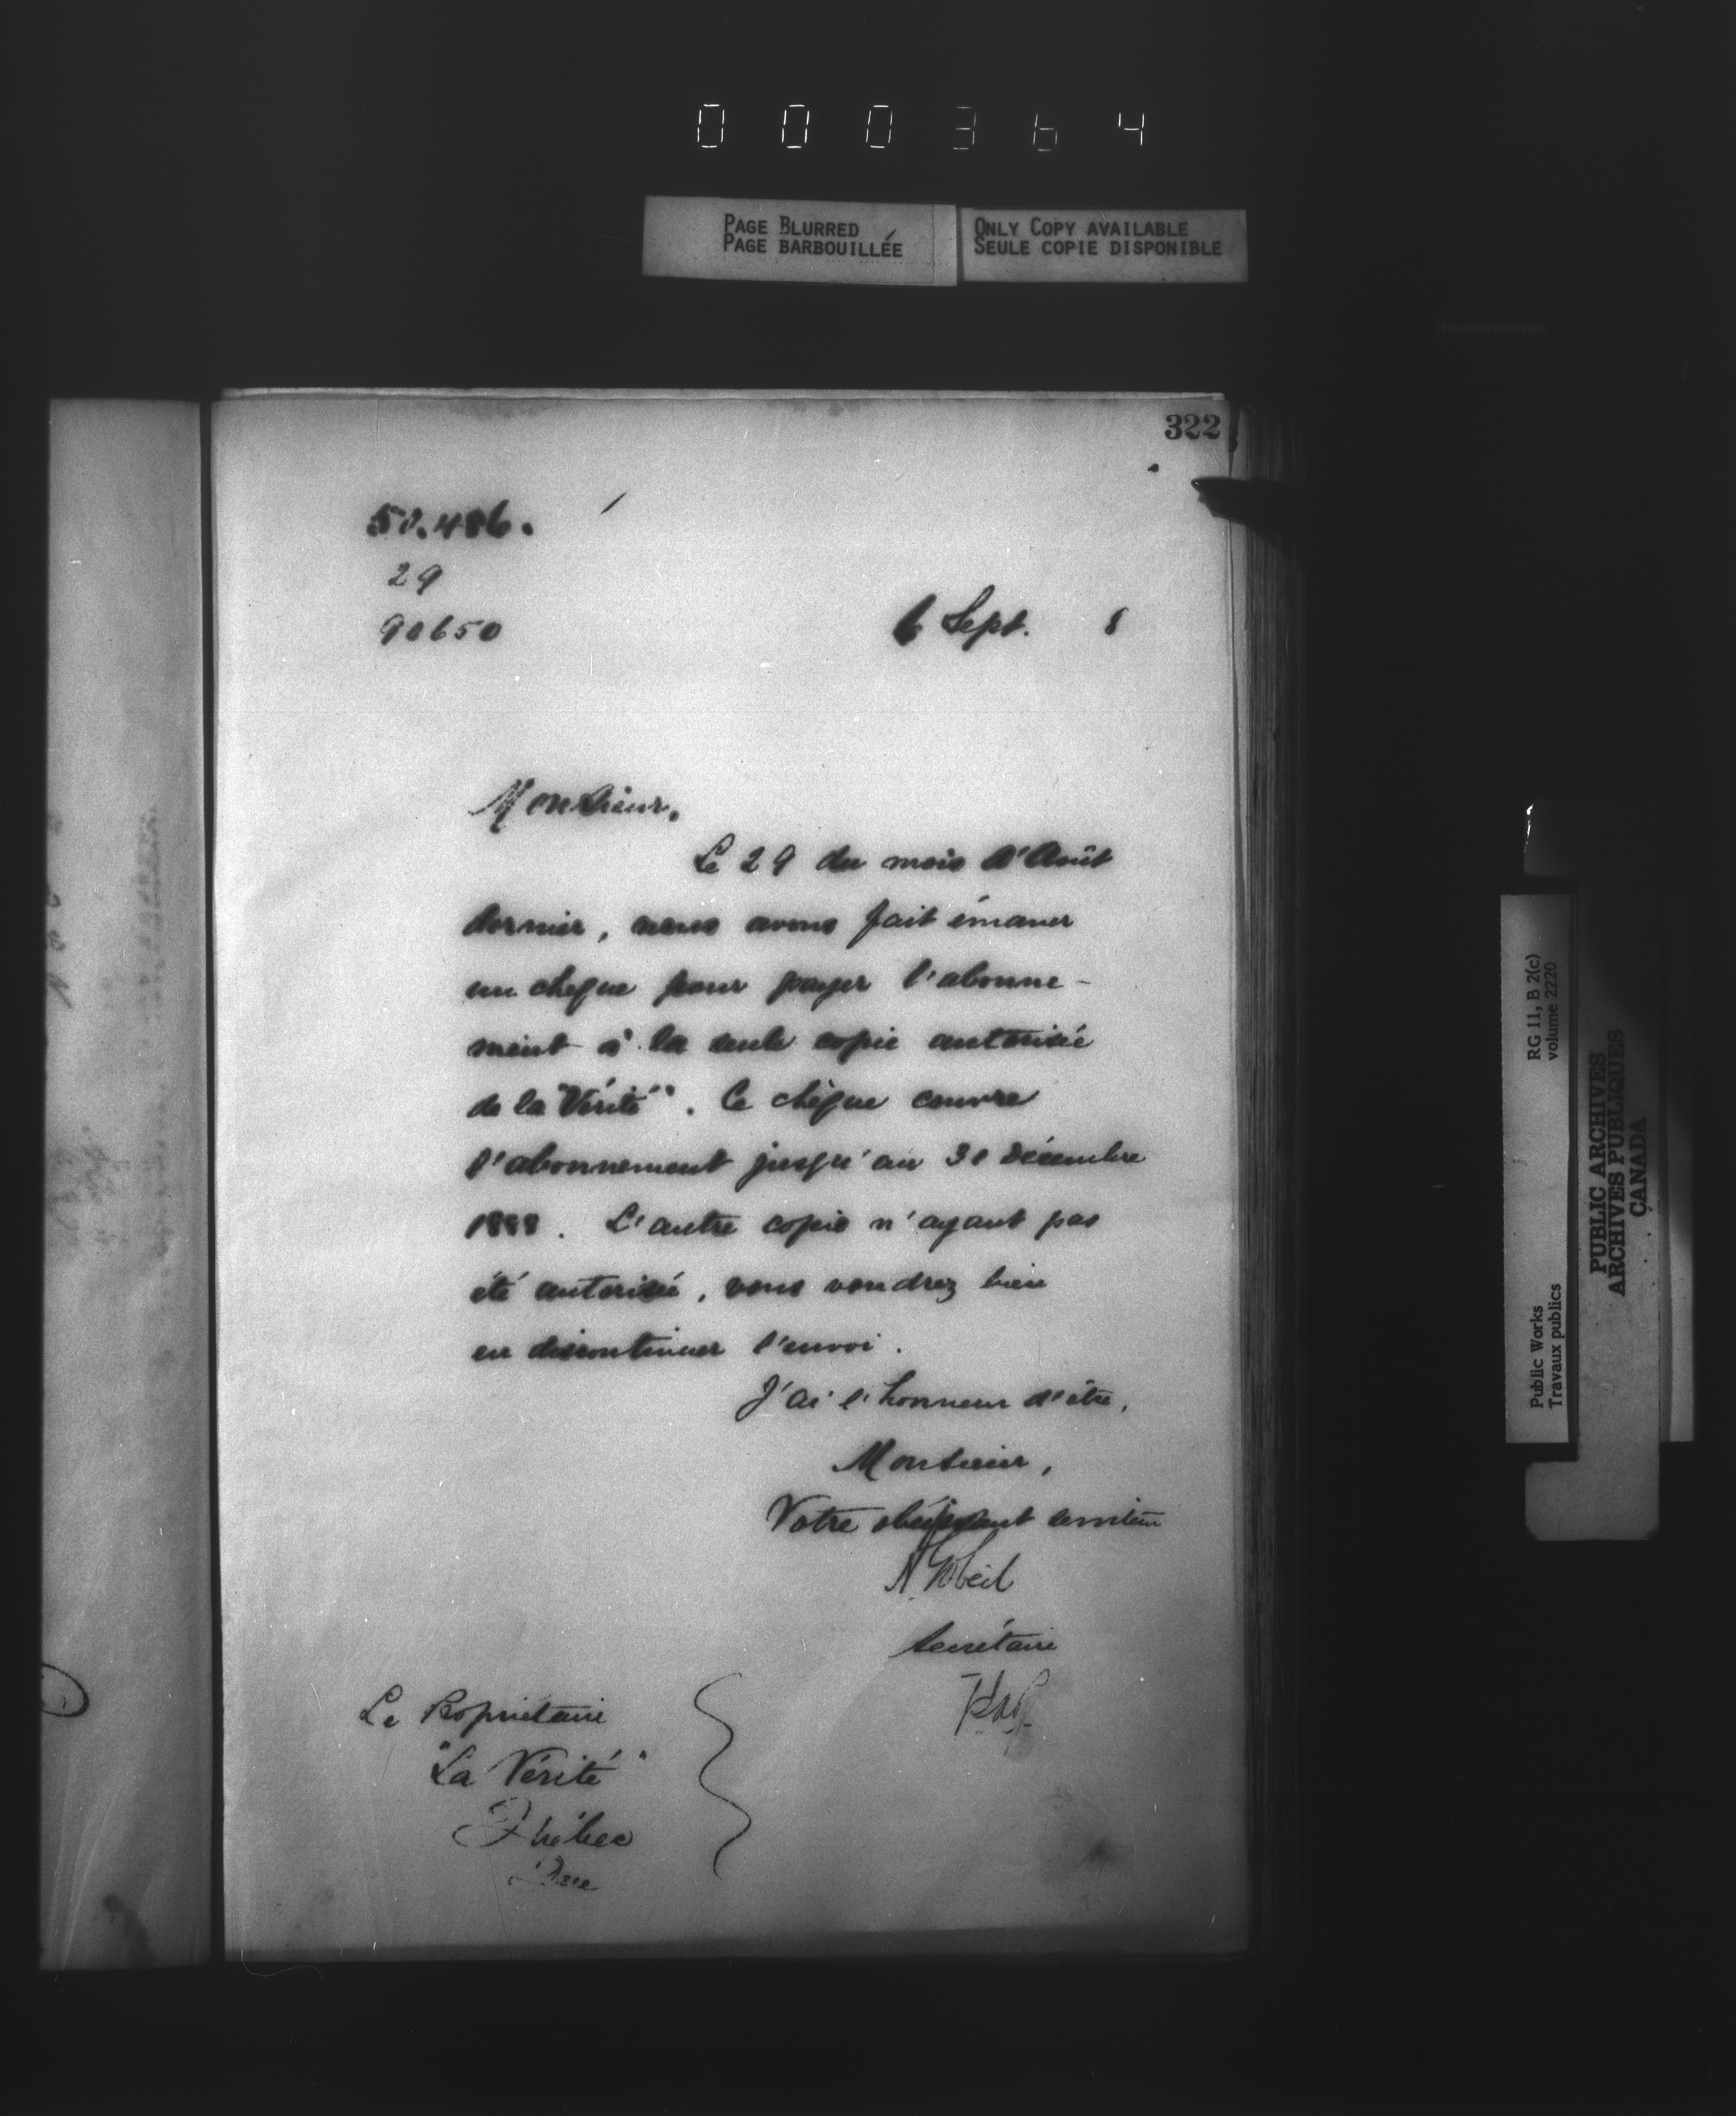 000364
PAGE BLURRED
PAGE BARBOUILLÉE
ONLY COPY AVAILABLE
SEULE COPIE DISPONIBLE
322
29
90650
6 Sept. 8
Monsieur,
Le 29 du mois d'Août
dernier, nous avons fait émaner
un cheque pour payer l'abonne-
ment à la seule copie autorisée
de la "Vérité". Ce chèque couvre
l'abonnement jusqu'au 31 décembre
1888. L'autre copie n'ayant pas
été autorisée, vous voudrez bien
en discontinuer l'envoi.
J'ai l'honneur d'être,
Monsieur,
Votre obéissant serviteur
A Gobeil
Secrétaire
Le Propriétaire
"La Vérité"
Québec
Que
RG 11, B 2(c)
volume 2220
Public Works
Travaux publics
PUBLIC ARCHIVES
ARCHIVES PUBLIQUES
CANADA